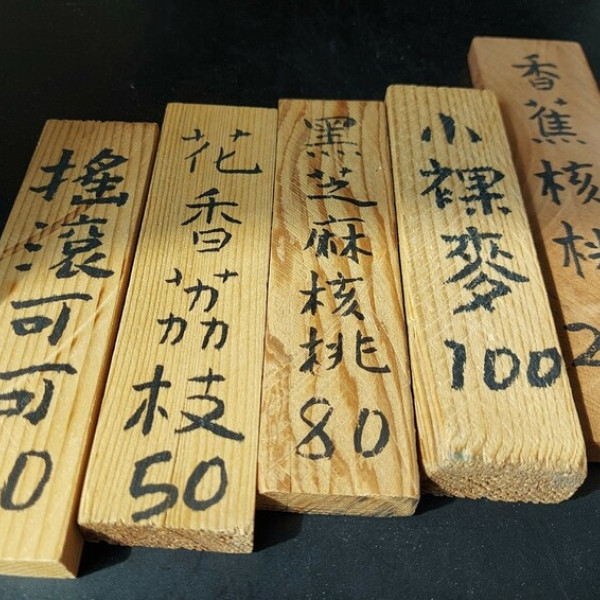 搖滾可可
0
花香荔枝
50
黑芝麻核挑
80
小裸麥
100
香蕉核
2